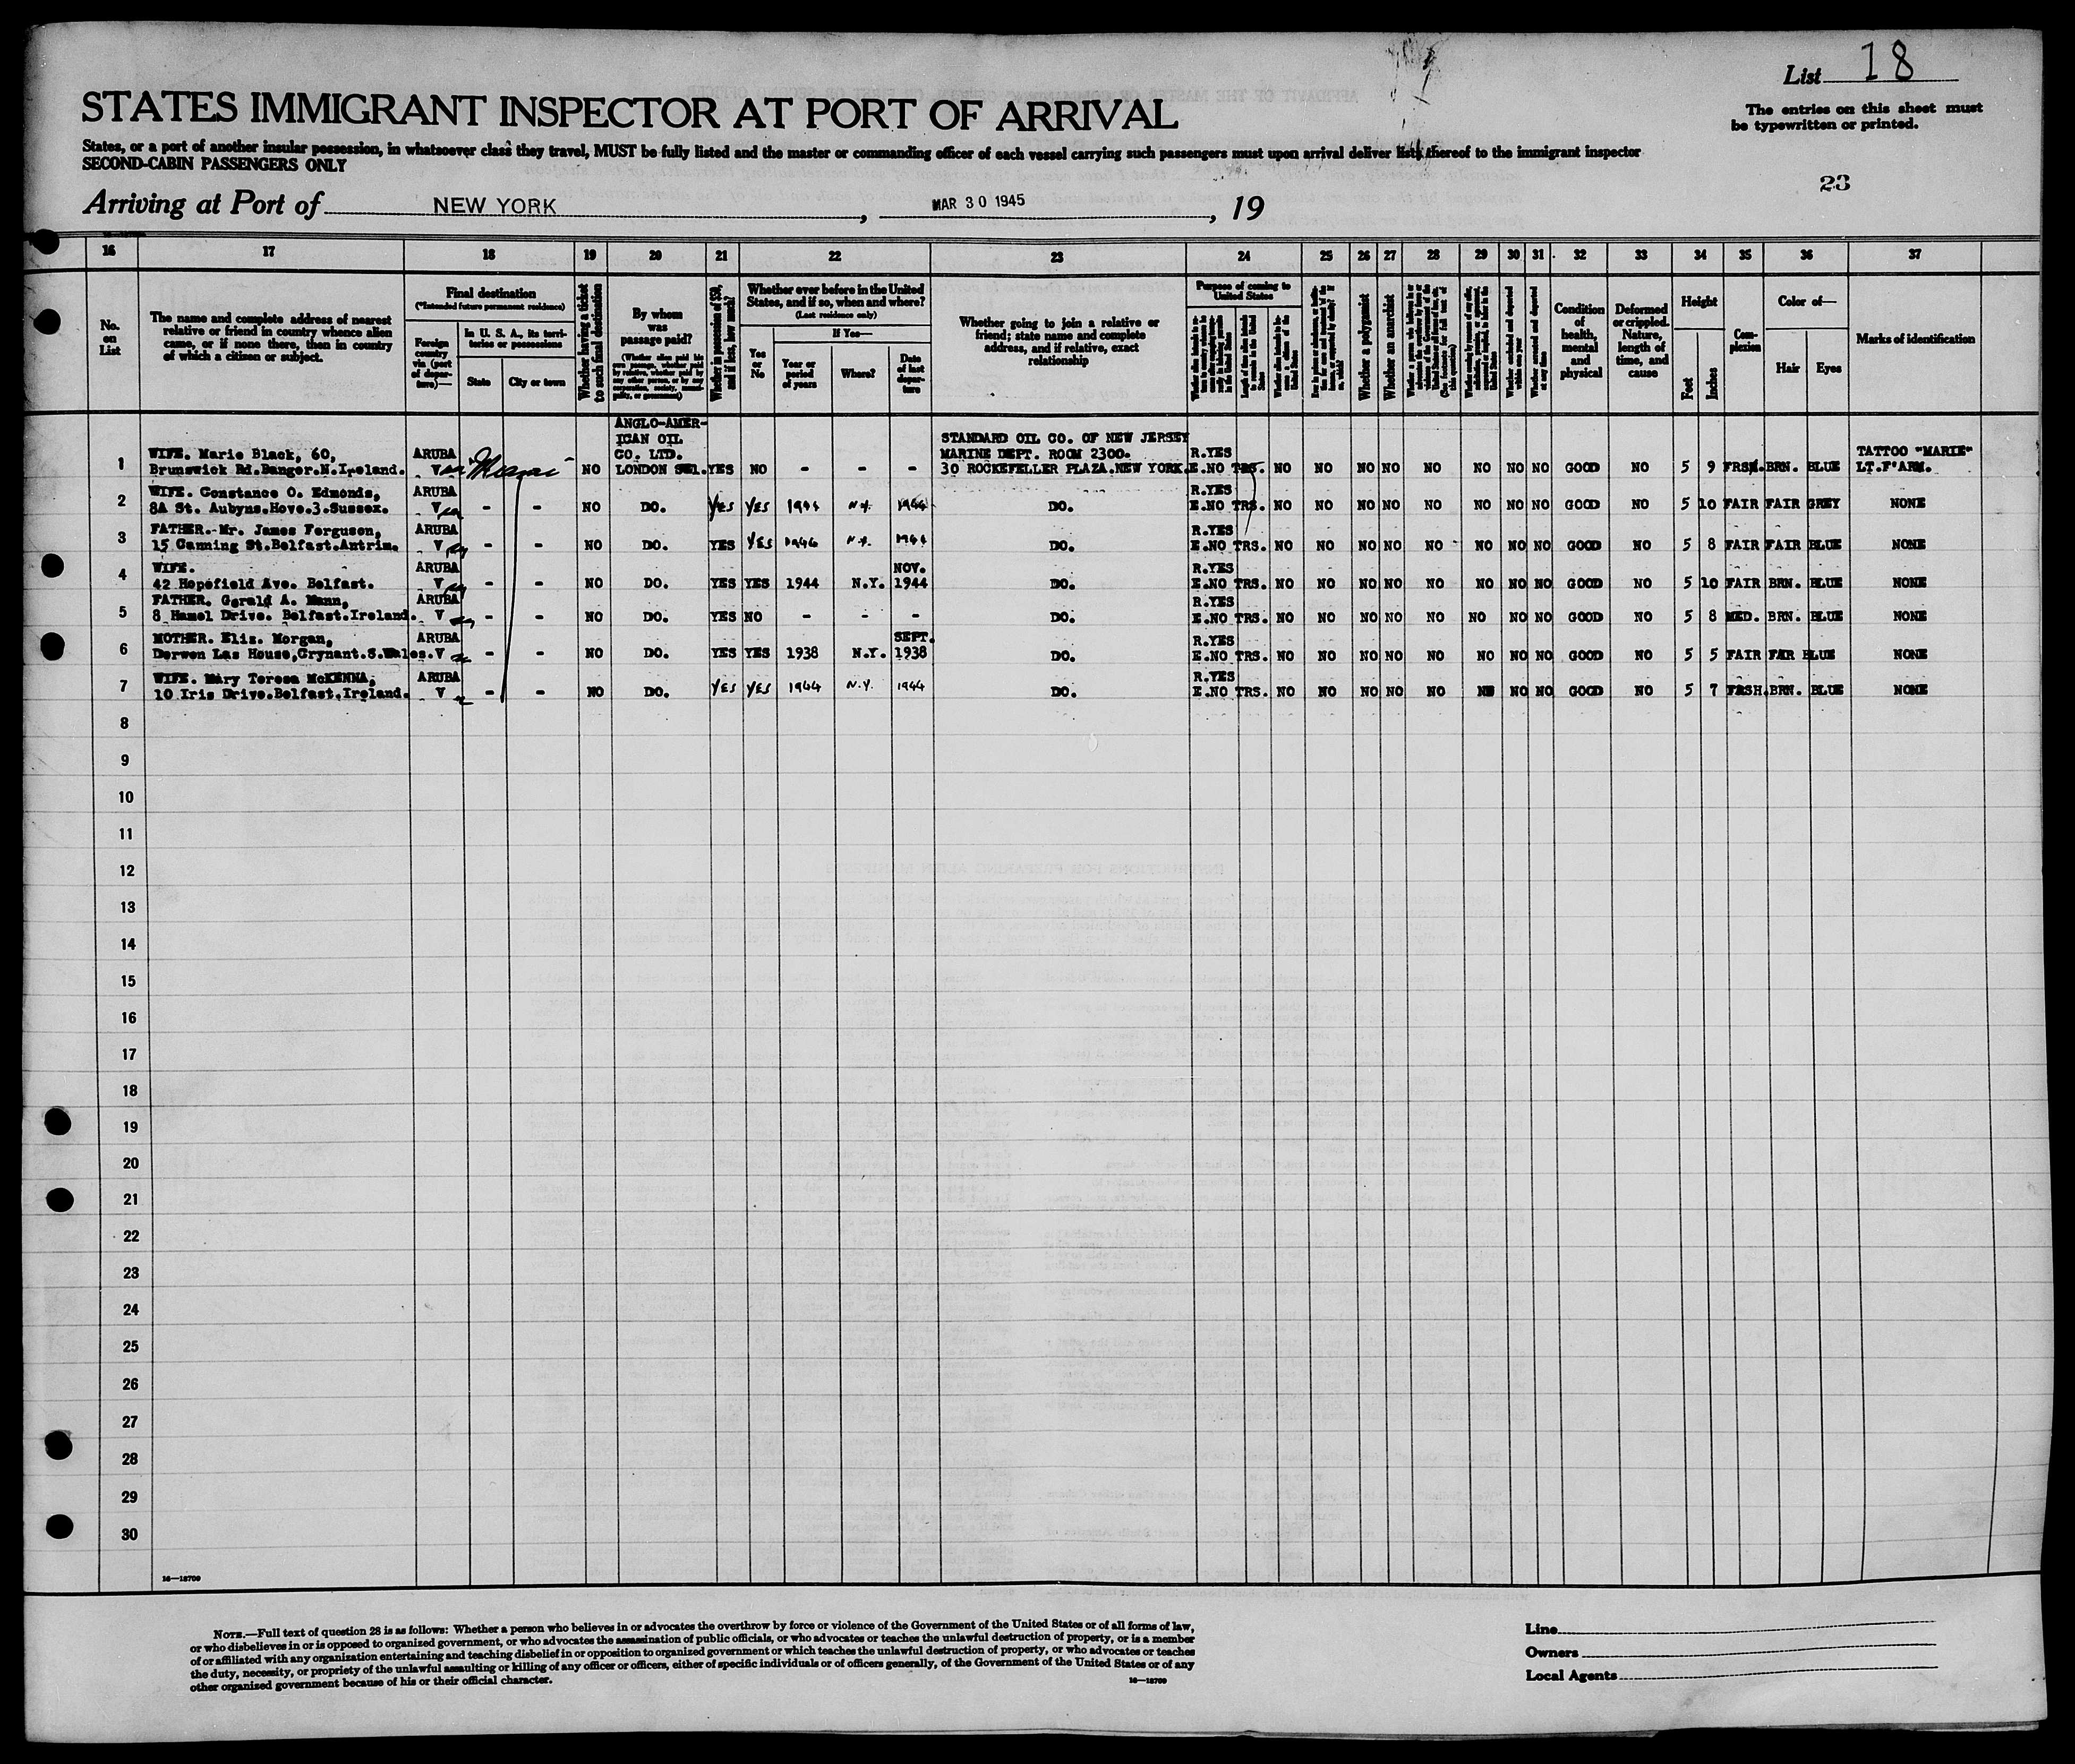 List 18
STATES IMMIGRANT INSPECTOR AT PORT OF ARRIVAL
The entries on this sheet must
be typewritten or printed.
States, or a port of another insular possession, in whatsoever class they travel, MUST be fully listed and the master or commanding officer of each vessel carrying such passengers must upon arrival deliver lists thereof to the immigrant inspector
SECOND-CABIN PASSENGERS ONLY
23
Arriving at Port of NEW YORK, MAR 30 1945, 19
16 17 18 19 20 21 22 23 24 25 26 27 28 29 30 31 32 33 34 35 36 37
No. on List
The name and complete address of nearest
relative or friend in country whence alien
came, or if none there, then in country
of which a citizen or subject.
Final destination
(*Intended future permanent residence)
Foreign country via (port of departure)—
In U. S. A., its territories or possessions
State
City or town
Whether having a ticket to such final destination
By whom was passage paid?
(Whether alien paid his own passage, whether paid by relative, whether paid by any other person, or by any corporation, society, municipality, or government)
Whether in possession of $50, and if less, how much?
Whether ever before in the United
States, and if so, when and where?
(Last residence only)
Yes or No
If Yes—
Year or period of years
Where?
Date of last departure
Whether going to join a relative or
friend; state name and complete
address, and if relative, exact
relationship
Purpose of coming to United States
Whether a polygamist
Whether an anarchist
Condition of health, mental and physical
Deformed or crippled. Nature, length of time, and cause
Height
Feet
Inches
Complexion
Color of—
Hair
Eyes
Marks of identification
ANGLO-AMER-
ICAN OIL
CO. LTD.
STANDARD OIL CO. OF NEW JERSEY
WIFE. Marie Black, 60, ARUBA MARINE DEPT. ROOM 2300. R.YES TATTOO "MARIE"
1 Brunswick Rd.Bangor.N.Ireland. V Miami NO LONDON YES NO - - - 30 ROCKEFELLER PLAZA.NEW YORK. E.NO TRS. NO NO NO NO NO NO NO NO GOOD NO 5 9 FRSH. BRN. BLUE LT.F'ARM.
WIFE. Constance O. Edmonds, ARUBA R.YES
2 8A St. Aubyns.Hove.3.Sussex. V - - NO DO. YES YES 1944 N.Y. 1944 DO. E.NO TRS. NO NO NO NO NO NO NO NO GOOD NO 5 10 FAIR FAIR GREY NONE
FATHER. Mr. James Ferguson, ARUBA R.YES
3 15 Canning St.Belfast.Antrim. V - - NO DO. YES YES 1944 N.Y. 1944 DO. E.NO TRS. NO NO NO NO NO NO NO NO GOOD NO 5 8 FAIR FAIR BLUE NONE
WIFE. ARUBA NOV. R.YES
4 42 Hopefield Ave. Belfast. V - - NO DO. YES YES 1944 N.Y. 1944 DO. E.NO TRS. NO NO NO NO NO NO NO NO GOOD NO 5 10 FAIR BRN. BLUE NONE
FATHER. Gerald A. Mann, ARUBA R.YES
5 8 Hamel Drive. Belfast.Ireland. V - - NO DO. YES NO - - - DO. E.NO TRS. NO NO NO NO NO NO NO NO GOOD NO 5 8 MED. BRN. BLUE NONE
MOTHER. Eliz. Morgan, ARUBA SEPT. R.YES
6 Derwen Las House,Crynant.S.Wales. V - - NO DO. YES YES 1938 N.Y. 1938 DO. E.NO TRS. NO NO NO NO NO NO NO NO GOOD NO 5 5 FAIR FAR BLUE NONE
WIFE. Mary Teresa McKENNA, ARUBA R.YES
7 10 Iris Drive.Belfast,Ireland. V - - NO DO. YES YES 1944 N.Y. 1944 DO. E.NO TRS. NO NO NO NO NO NO NO NO GOOD NO 5 7 FRSH. BRN. BLUE NONE
8
9
10
11
12
13
14
15
16
17
18
19
20
21
22
23
24
25
26
27
28
29
30
16—18709
NOTE.—Full text of question 28 is as follows: Whether a person who believes in or advocates the overthrow by force or violence of the Government of the United States or of all forms of law,
or who disbelieves in or is opposed to organized government, or who advocates the assassination of public officials, or who advocates or teaches the unlawful destruction of property, or is a member
of or affiliated with any organization entertaining and teaching disbelief in or opposition to organized government or which teaches the unlawful destruction of property, or who advocates or teaches
the duty, necessity, or propriety of the unlawful assaulting or killing of any officer or officers, either of specific individuals or of officers generally, of the Government of the United States or of any
other organized government because of his or their official character.
16—18709
Line
Owners
Local Agents